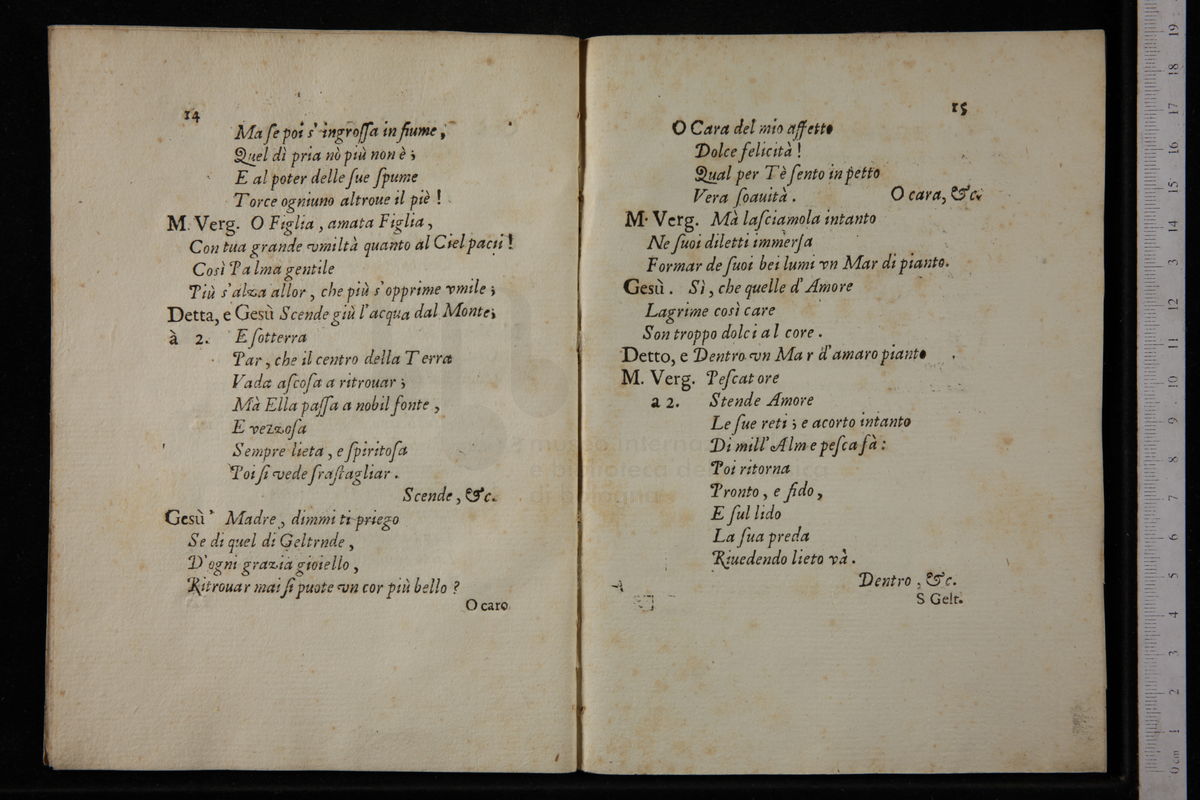 14
Ma ſe poi s'ingroſſa in fiume,
Quel dì pria nò più non è;
E al poter delle ſue ſpume
Torce ogniuno altroue il piè!
M. Verg. O Figlia, amata Figlia,
Con tua grande vmiltà quanto al Ciel pacii!
Così Palma gentile
Più s'alza allor, che più s'opprime vmile;
Detta, e Gesù Scende giù l'acqua dal Monte;
à 2. E ſotterra
Par, che il centro della Terra
Vada aſcoſa a ritrouar;
Mà Ella paſſa a nobil fonte,
E vezzoſa
Sempre lieta, e ſpiritoſa
Poi ſi vede ſraſtagliar.
Scende, &c.
Gesù Madre, dimmi ti priego
Se di quel di Geltrnde,
D'ogni grazia gioiello,
Ritrouar mai ſi puote vn cor più bello?
O caro
15
O Cara del mio affetto
Dolce felicità!
Qual per Tè ſento in petto
Vera ſoauità. O cara, &c.
M. Verg. Mà laſciamola intanto
Ne ſuoi diletti immerſa
Formar de ſuoi bei lumi vn Mar di pianto.
Gesù. Sì, che quelle d'Amore
Lagrime così care
Son troppo dolci al core.
Detto, e Dentro vn Mar d'amaro pianto
M. Verg. Peſcatore
a 2. Stende Amore
Le ſue reti; e acorto intanto
Di mill'Alme peſca fà:
Poi ritorna
Pronto, e fido,
E ſul lido
La ſua preda
Riuedendo lieto và.
Dentro, &c.
S Gelt.